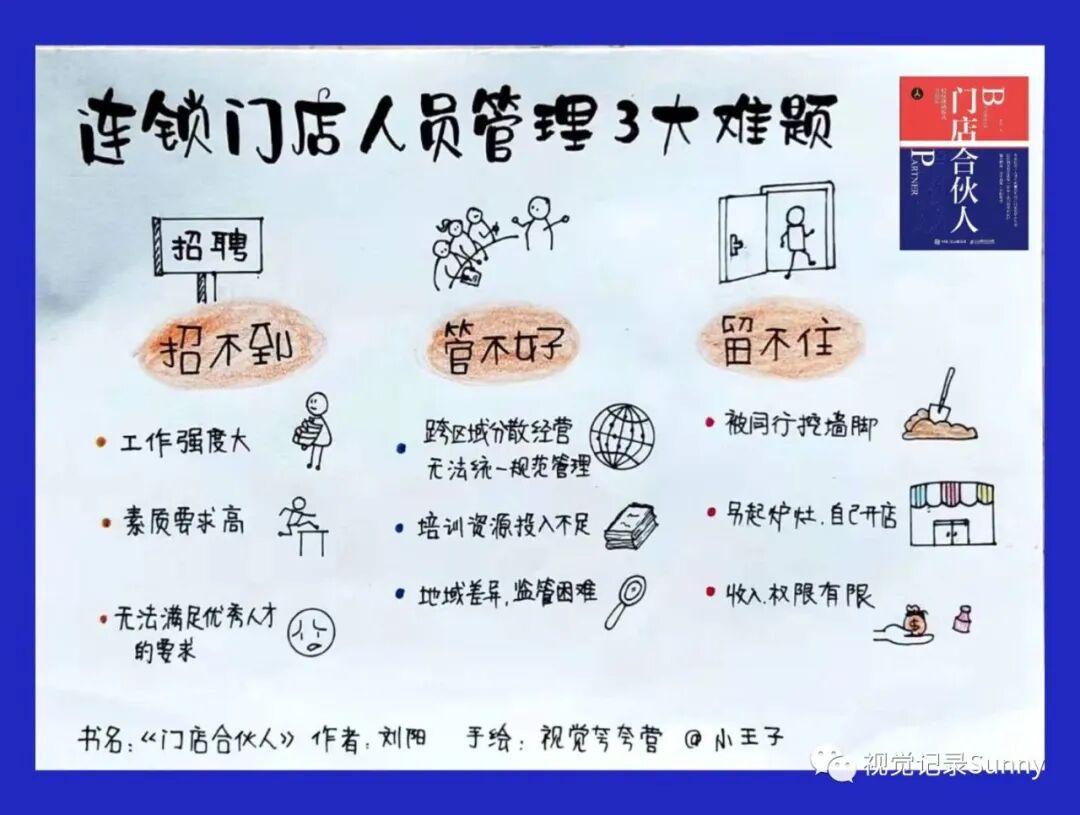 连锁门店人员管理3大难题
B
门店合伙人
PARTNER
招聘
招不到
工作强度大
素质要求高
无法满足优秀人才
的要求
管不好
跨区域分散经营
无法统一规范管理
培训资源投入不足
地域差异,监管困难
留不住
被同行挖墙脚
另起炉灶.自己开店
收入.权限有限
$
书名:《门店合伙人》 作者:刘阳 手绘:视觉夸夸营 @小王子
视觉记录Sunny